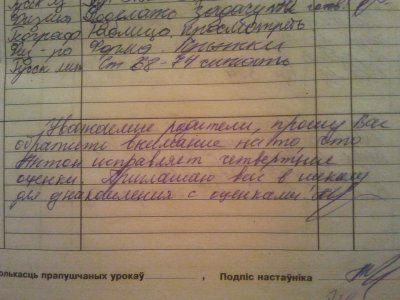 Физика
Географ Таблица, просмотреть
Физ-ра Форма Прыжки
Русск лит Ст 68-74 читать
Уважаемые родители, прошу Вас
обратить внимание на то, что
Антон исправляет четвертные
оценки. Приглашаю вас в школу
для ознакомления с оценками!
олькасць прапушчаных урокаў , Подпіс настаўніка